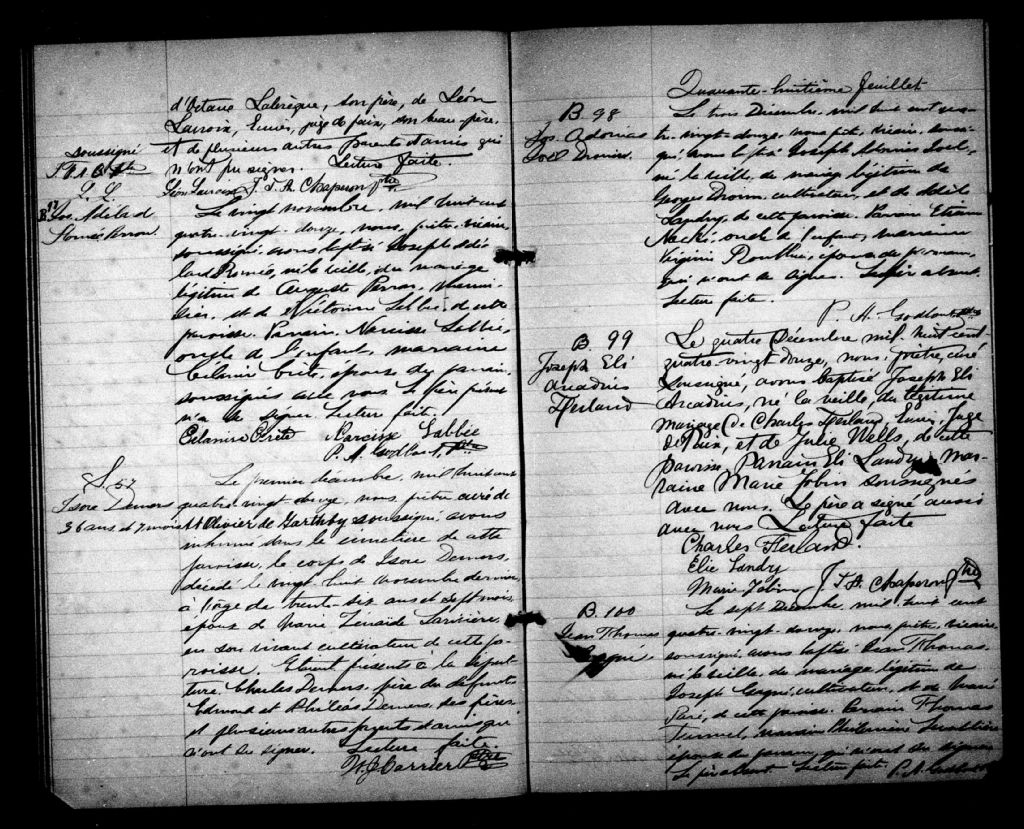 d'Octave Labrèque, son père, de Léon
Lacroix, Ecuier, juge de paix, son beau-père,
et de plusieurs autres parents et amis qui
n'ont pu signer. Lecture faite.
Léon Lacroix J. T. A. Chaperon Ptre
soussigné
B 97
Jos. Adélard
Roméo
Le vingt novembre, mil huit cent
quatre-vingt-douze, nous, prêtre, vicaire,
soussigné avons baptisé Joseph Adé-
lard Roméo, né la veille, du mariage
légitime de Auguste
et de Victorine Labbé, de cette
paroisse. Parrain, Narcisse Labbé,
oncle de l'enfant, marraine
épouse du parrain,
soussignés avec nous. Le père
n'a su signer. Lecture faite.
Narcisse Labbée
P. A. Godbout, Ptre
S 57
Isaïe Demers
36 ans et 7 mois
Le premier décembre, mil huit cent
quatre-vingt-douze, nous prêtre curé de
St Olivier de Garthby soussigné, avons
inhumé dans le cimetière de cette
paroisse, le corps de Isaïe Demers,
décédé le vingt-huit novembre dernier,
à l'âge de trente-six ans et sept mois,
époux de Marie Zenaïde Larivière,
en son vivant cultivateur de cette pa-
roisse. Etaient présents à la sépul-
ture, Charles Demers, père du défunt,
Edmond et Philéas Demers, ses frères,
et plusieurs autres parents et amis qui
n'ont su signer. Lecture faite.
Carrier Ptre
Quarante-huitième feuillet
B. 98
Jos. Adonias
Joël Drouin.
Le trois Décembre, mil huit cent qua-
tre-vingt-douze, nous ptre, vicaire, soussi-
gné, avons baptisé Joseph Adonias Joël,
né la veille, du mariage légitime de
Georges Drouin, cultivateur, et de
Landry, de cette paroisse. Parrain Etienne
oncle de l'enfant, marraine
Virginie épouse du parrain,
qui n'ont su signer. Le père absent.
Lecture faite.
P. A. Godbout Ptre
B. 99
Joseph Eli
Arcadius
Ferland
Le quatre Décembre mil huit cent
quatre-vingt douze, nous prêtre, curé
soussigné, avons baptisé Joseph Eli
Arcadius, né la veille, du légitime
mariage de Charles Ferland Ecuier, Juge
de Paix, et de Julie Wells, de cette
paroisse, Parrain Eli Landry, Mar-
raine Marie Jobin soussignés
avec nous. Le père a signé aussi
avec nous Lecture faite
Charles Ferland.
Elie Landry
Marie Jobin J. T. A. Chaperon Ptre
B. 100
Jean Thomas
Gagné.
Le sept Décembre, mil huit cent
quatre-vingt-douze, nous prêtre, vicaire,
soussigné, avons baptisé Jean Thomas,
né la veille, du mariage légitime de
Joseph Gagné, cultivateur, et de Marie
Paré, de cette paroisse. Parrain Thomas
marraine Philomène
épouse du parrain, qui n'ont su signer.
Le père absent. Lecture faite. P. A. Godbout